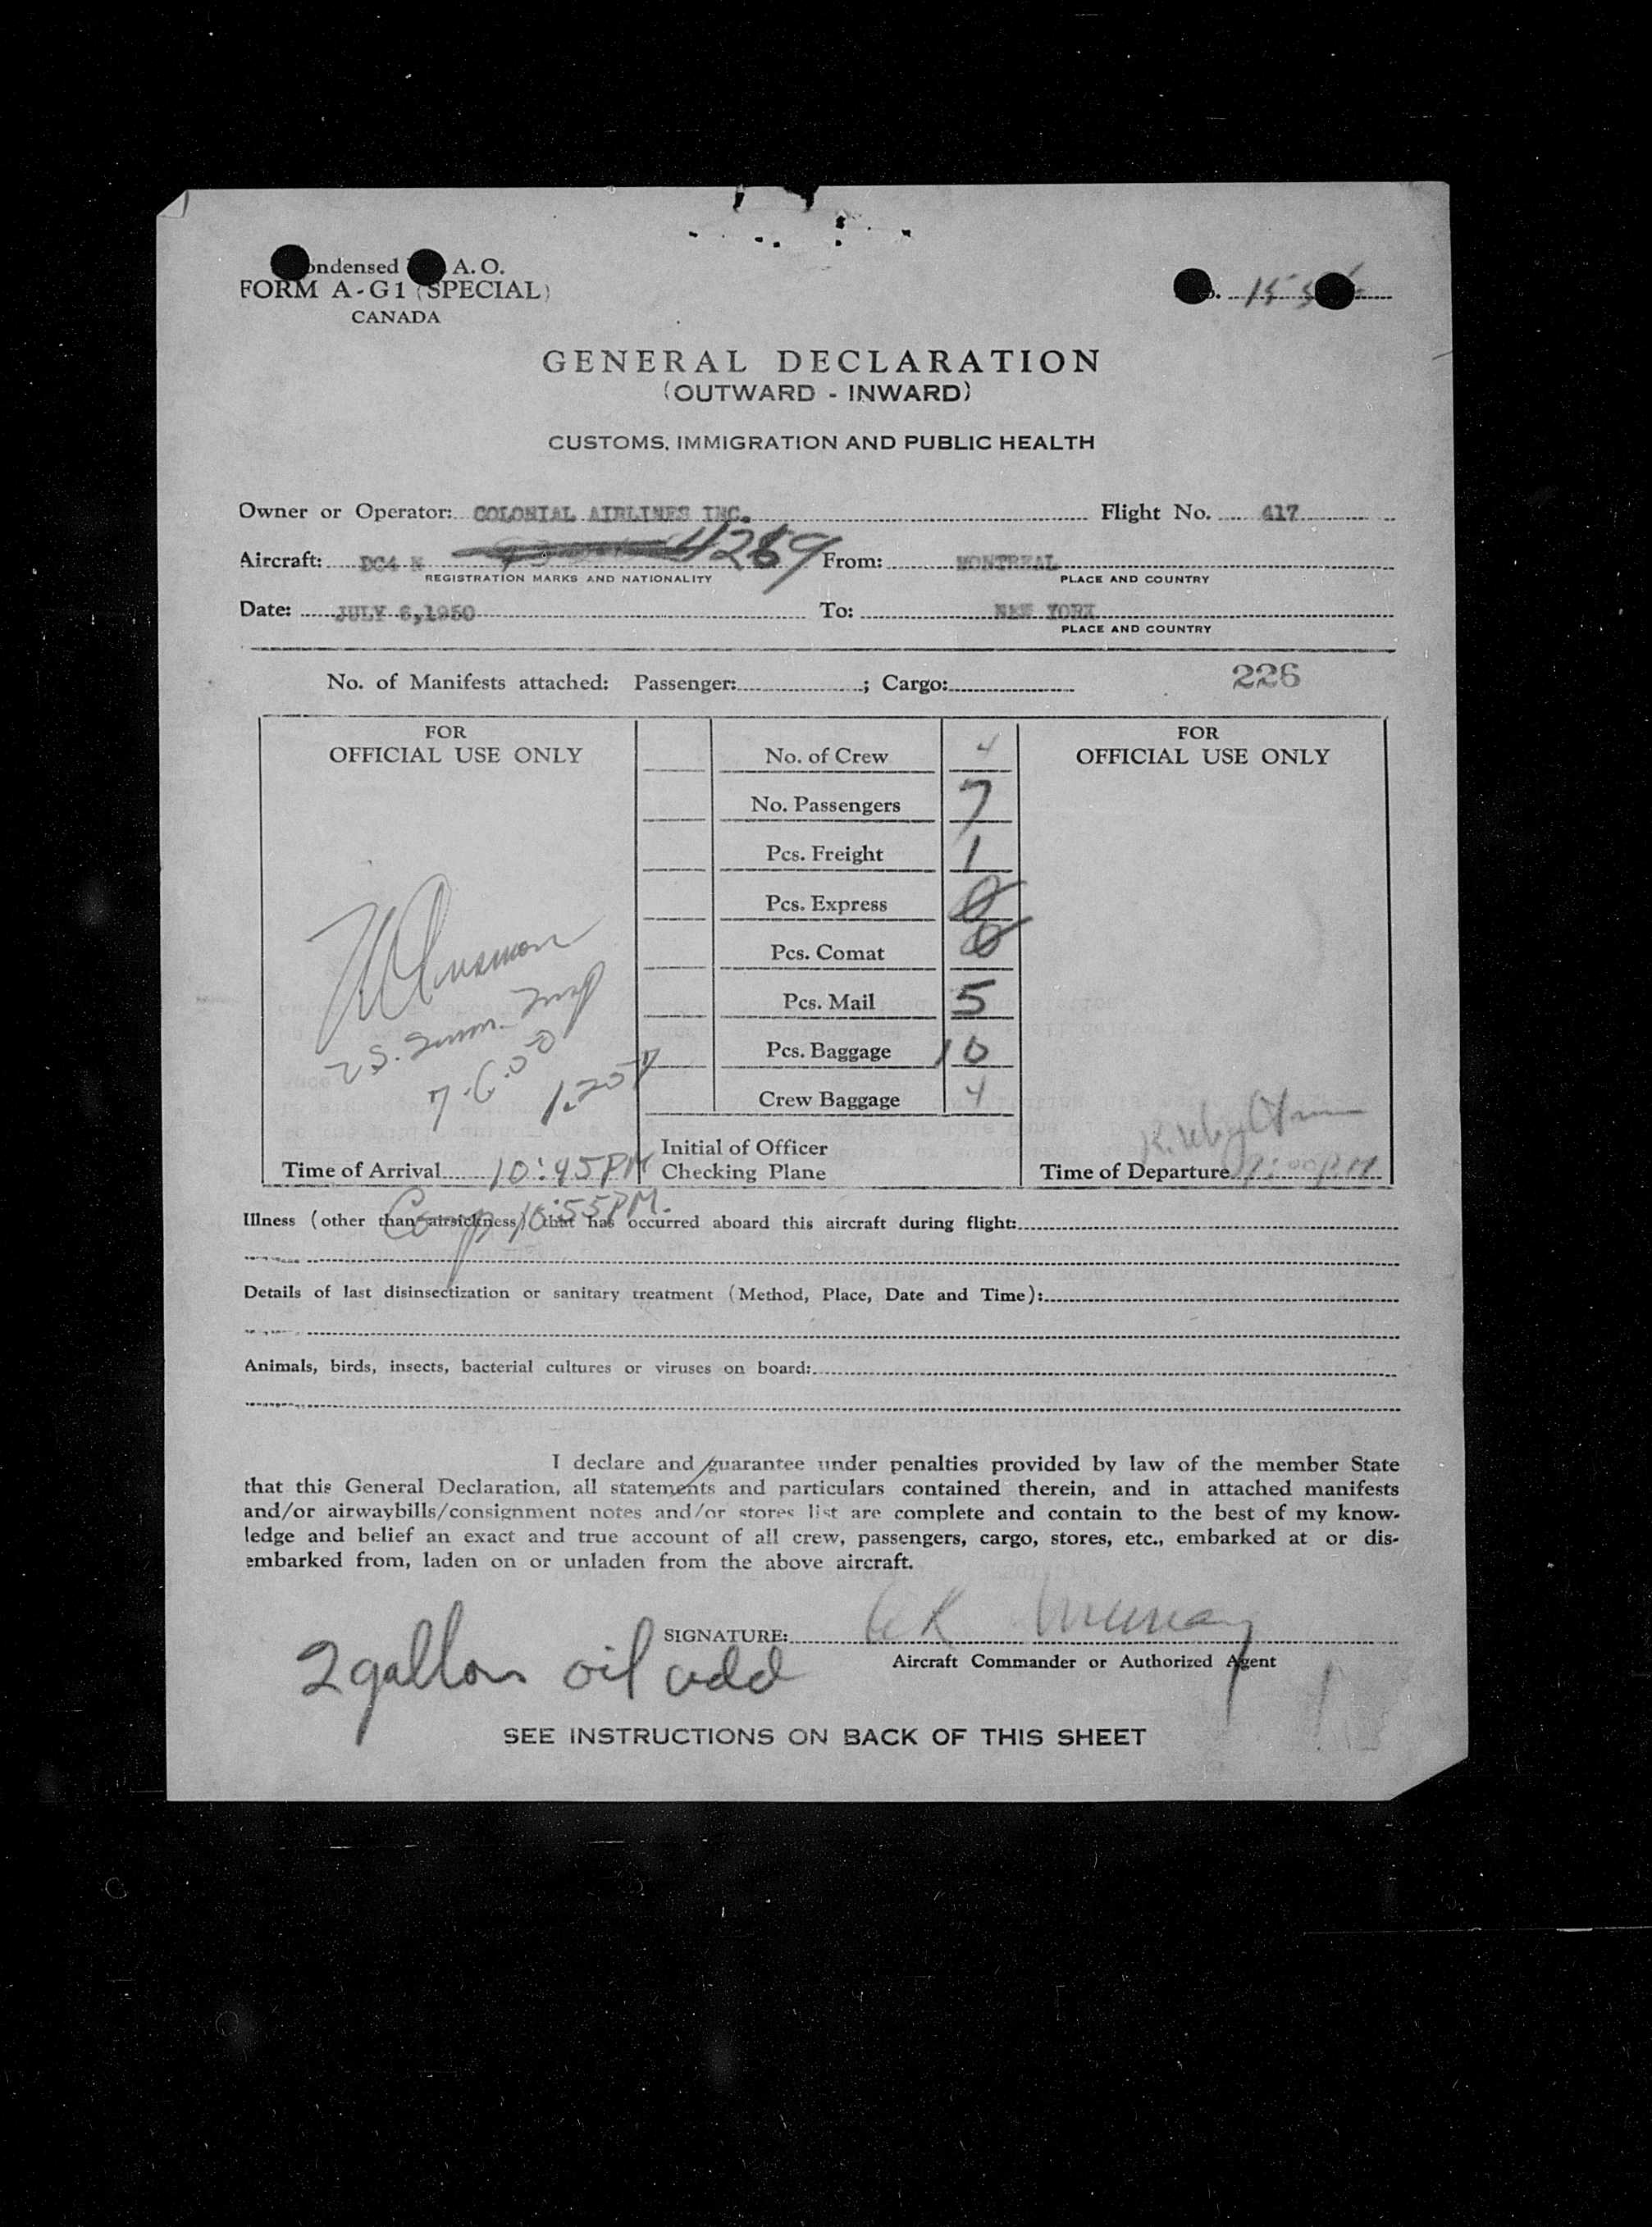 ondensed A. O.
FORM A-G1 (SPECIAL)
CANADA
GENERAL DECLARATION
(OUTWARD - INWARD)
CUSTOMS, IMMIGRATION AND PUBLIC HEALTH
Owner or Operator: COLONIAL AIRLINES INC. Flight No. 417
Aircraft: DC4 N 4289 From: MONTREAL
REGISTRATION MARKS AND NATIONALITY PLACE AND COUNTRY
Date: JULY 6,1950 To: NEW YORK
PLACE AND COUNTRY
No. of Manifests attached: Passenger: ; Cargo: 226
FOR
OFFICIAL USE ONLY
No. of Crew 4
No. Passengers 7
Pcs. Freight 1
Pcs. Express 0
Pcs. Comat 0
Pcs. Mail 5
Pcs. Baggage 10
Crew Baggage 4
Initial of Officer
Checking Plane
FOR
OFFICIAL USE ONLY
Time of Arrival 10:45PM
Time of Departure 9:00PM
Comp 10:55PM.
Illness (other than airsickness) that has occurred aboard this aircraft during flight:
Details of last disinsectization or sanitary treatment (Method, Place, Date and Time):
Animals, birds, insects, bacterial cultures or viruses on board:
I declare and guarantee under penalties provided by law of the member State
that this General Declaration, all statements and particulars contained therein, and in attached manifests
and/or airwaybills/consignment notes and/or stores list are complete and contain to the best of my know-
ledge and belief an exact and true account of all crew, passengers, cargo, stores, etc., embarked at or dis-
embarked from, laden on or unladen from the above aircraft.
SIGNATURE: Murray
Aircraft Commander or Authorized Agent
2 gallons oil add
SEE INSTRUCTIONS ON BACK OF THIS SHEET